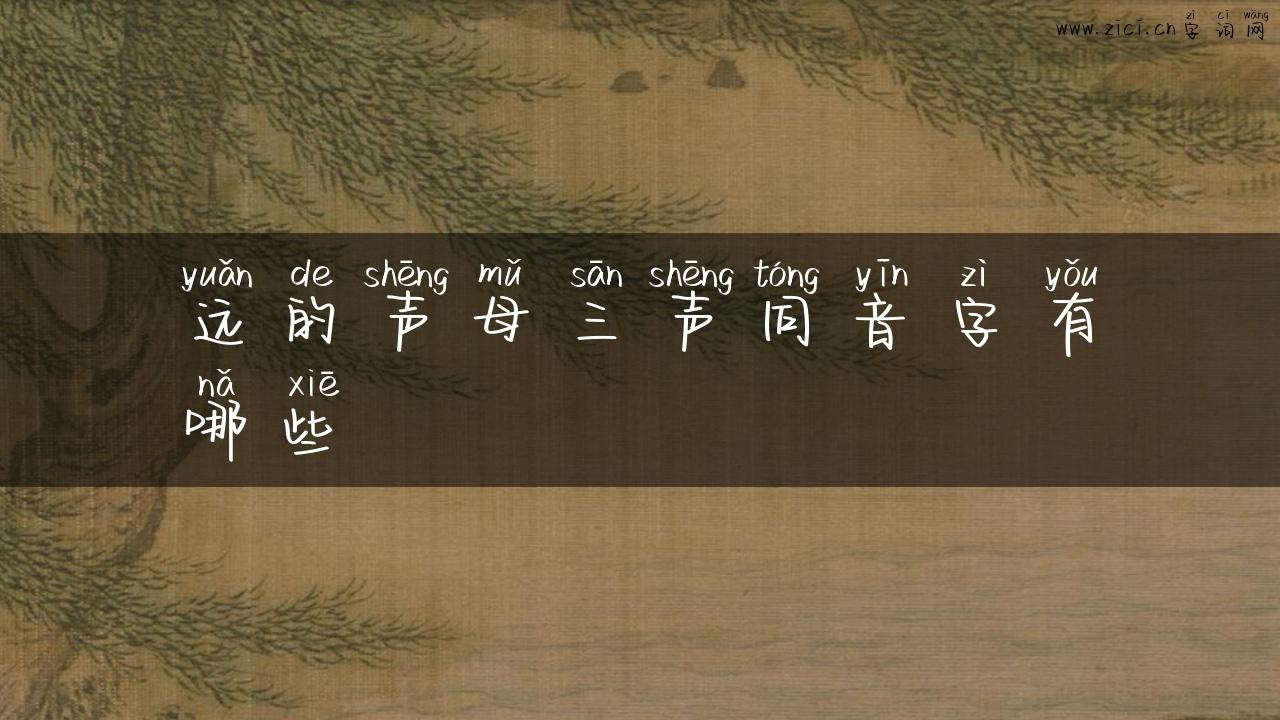 zì cí wǎng
www.zici.cn 字词网
yuǎn de shēng mǔ sān shēng tóng yīn zì yǒu
远的声母三声同音字有
nǎ xiē
哪些